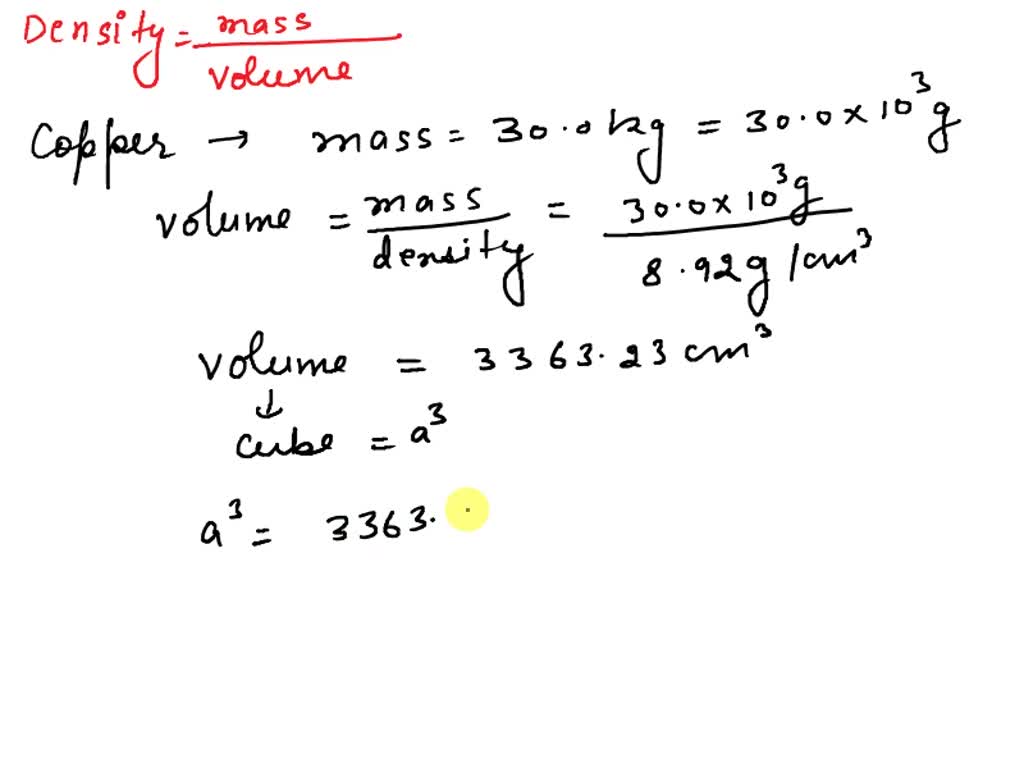 Density = mass / volume
Copper → mass = 30.0 kg = 30.0 × 10³ g
volume = mass / density = 30.0 × 10³ g / 8.92 g / cm³
volume = 3363.23 cm³
↓
cube = a³
a³ = 3363.